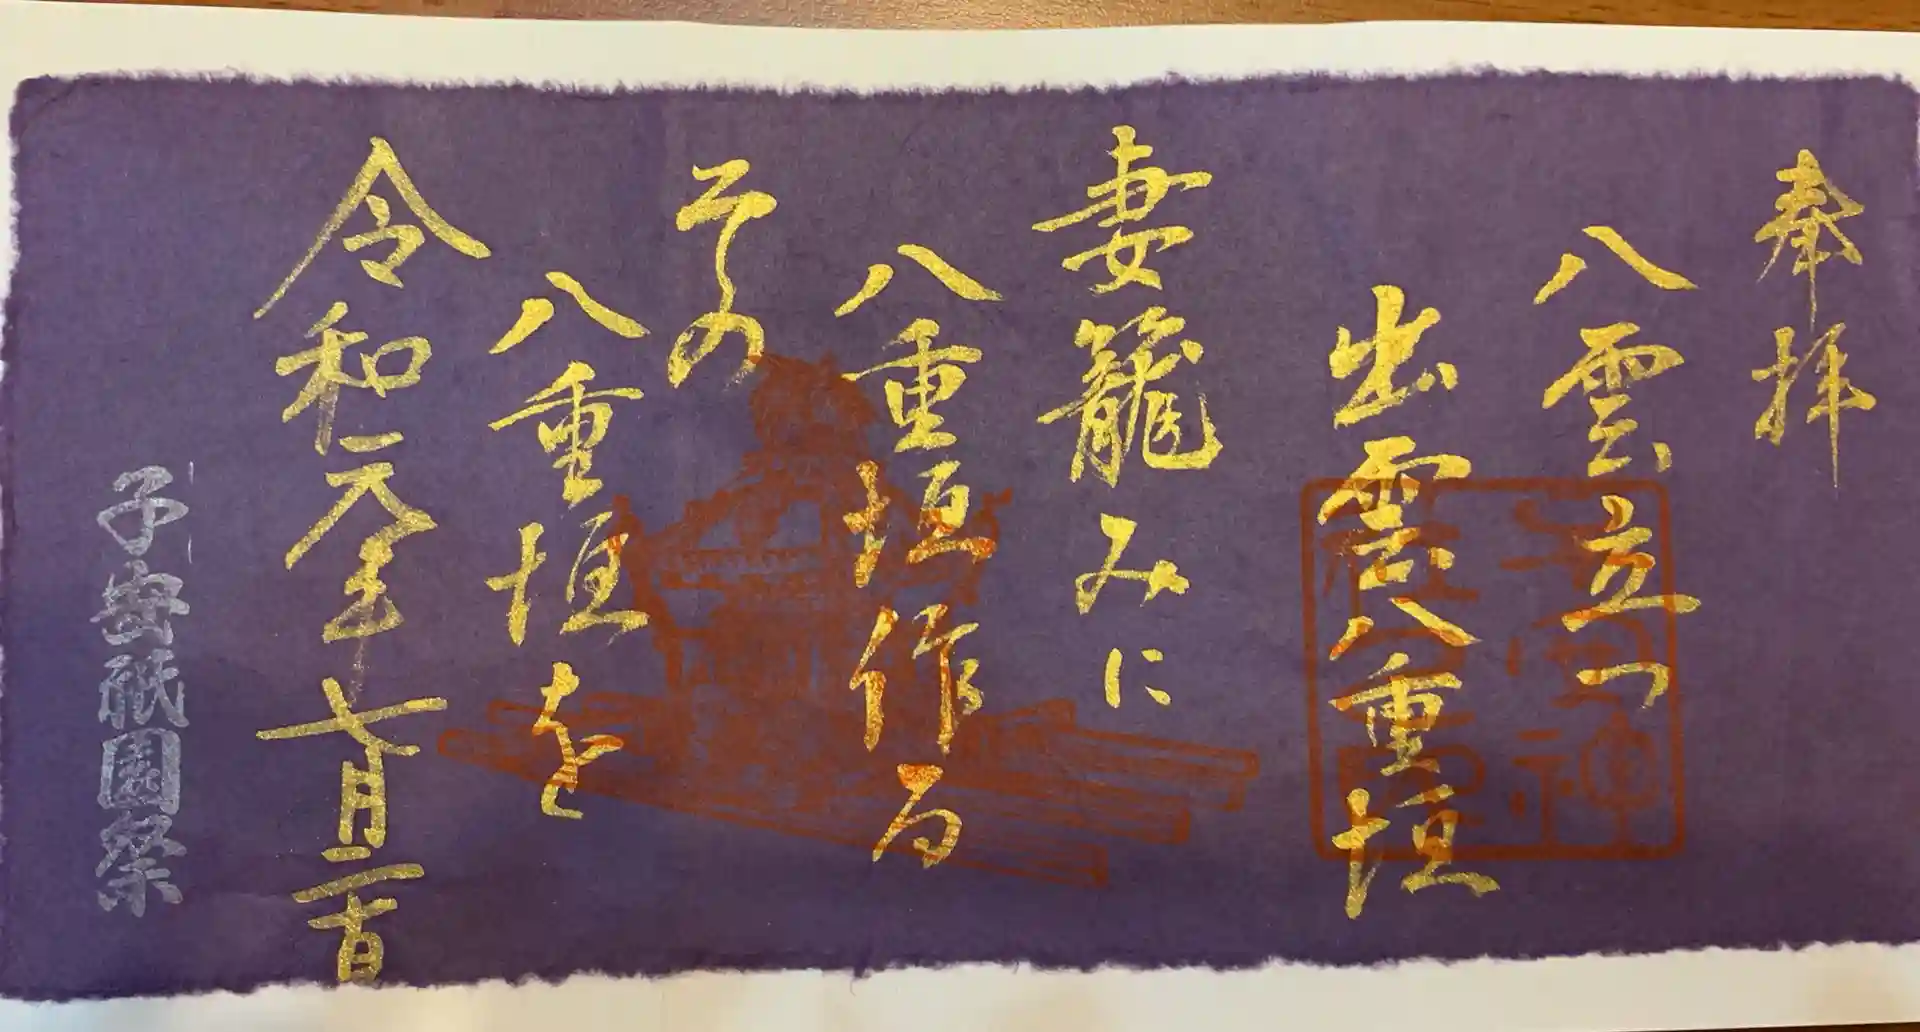 奉拝
八雲立つ
出雲八重垣
妻籠みに
八重垣作る
その
八重垣を
令和元年七月二十日
子安祇園祭
子安神